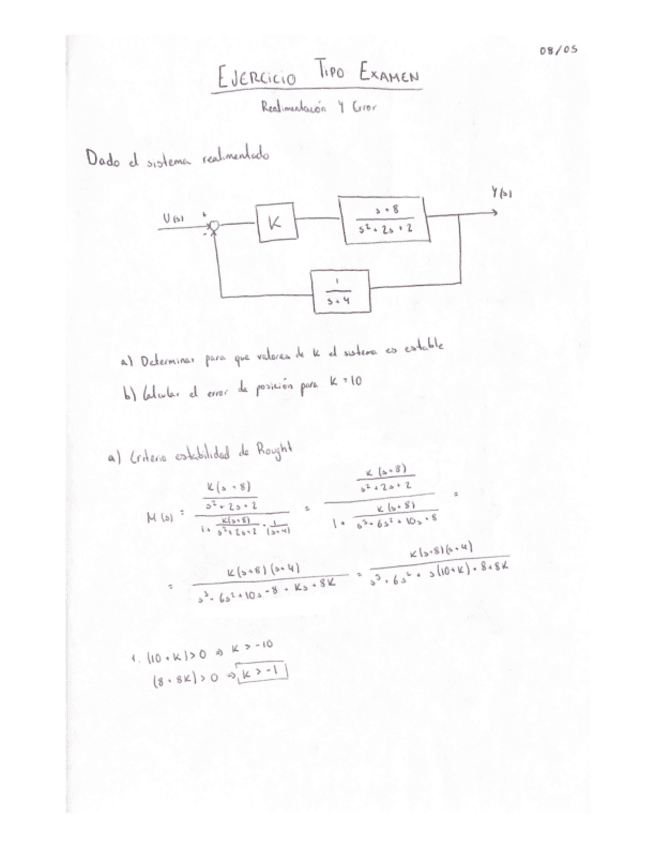 08/05
EJERCICIO TIPO EXAMEN
Realimentación y Error
Dado el sistema realimentado
U(s) + - K s+8 / s²+2s+2 Y(s)
1 / s+4
a) Determinar para que valores de K el sistema es estable
b) Calcular el error de posición para K=10
a) Criterio estabilidad de Rought
M(s) = (K(s+8) / s²+2s+2) / (1 + K(s+8) / s²+2s+2 · 1/(s+4)) = (K(s+8) / s²+2s+2) / (1 + K(s+8) / s³+6s²+10s+8) =
= K(s+8)(s+4) / s³+6s²+10s+8+Ks+8K = K(s+8)(s+4) / s³+6s²+s(10+K)+8+8K
1. (10+K)>0 ⇒ K>-10
(8+8K)>0 ⇒ K>-1